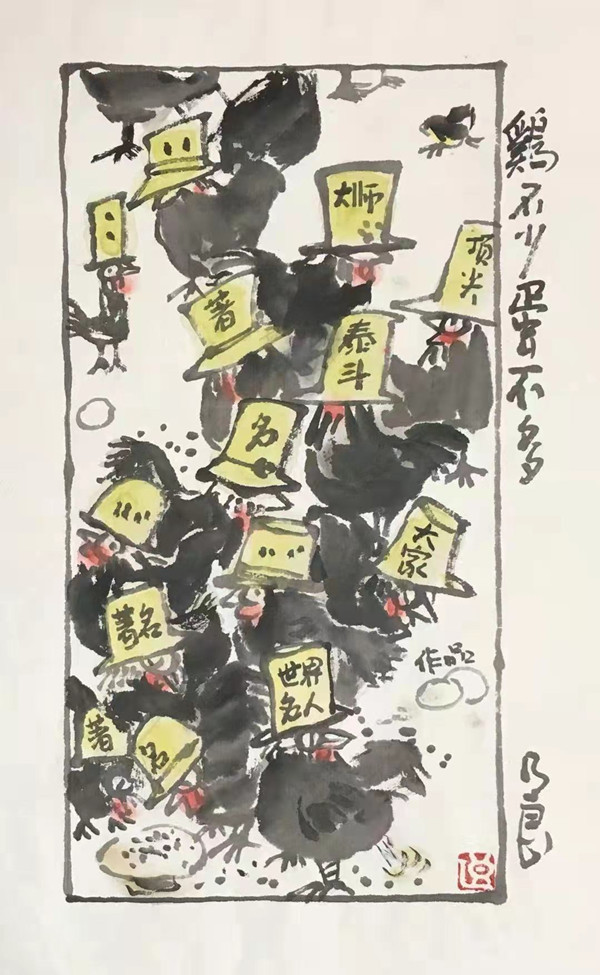 鷄不少蛋不多
大师
顶尖
著
泰斗
名
大家
著名
世界
名人
作品
著
名